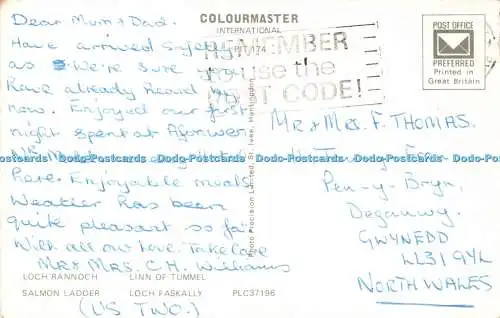 Dear Mum & Dad.
Have arrived Safely
as We're sure you
have already heard by
now. Enjoyed our first
night spent at Aberwen
Have. Enjoyable meals.
Weather has been
quite pleasant so far
With all our love. Take Care
Mr & Mrs. C. H. Williams
(US TWO.)
COLOURMASTER
INTERNATIONAL
PT/174
REMEMBER
to use the
POST CODE!
POST OFFICE
PREFERRED
Printed in
Great Britain
Mr & Mrs. F. THOMAS.
Pen-y-Bryn,
Deganwy.
GWYNEDD
LL31 9YL
NORTH WALES
Photo Precision Limited, St. Ives, Huntingdon
LOCH RANNOCH LINN OF TUMMEL
SALMON LADDER LOCH FASKALLY PLC37196
Dodo-Postcards Dodo-Postcards Dodo-Postcards Dodo-Postcards Dodo-Postcards Dodo-Postcards